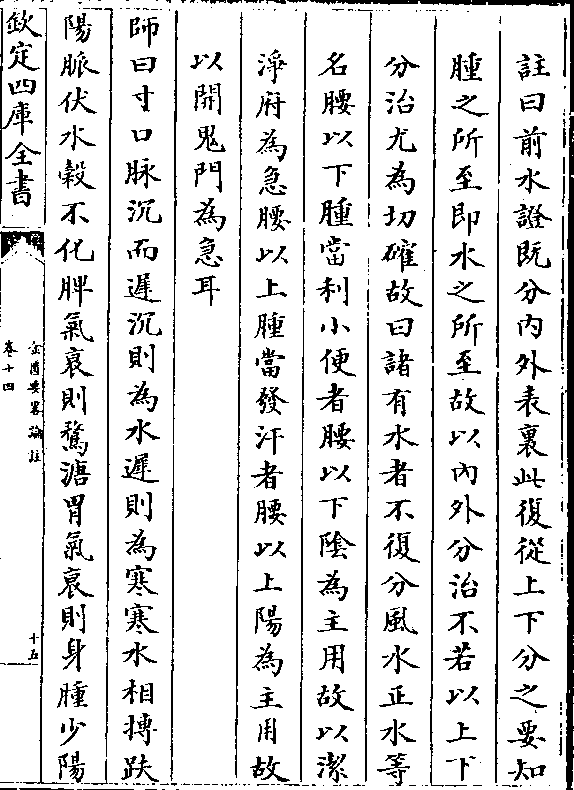 註曰前水證既分內外表裏此復從上下分之要知
腫之所至即水之所至故以內外分治不若以上下
分治尤為切確故曰諸有水者不復分風水正水等
名腰以下腫當利小便者腰以下陰為主用故以潔
淨府為急腰以上腫當發汗者腰以上陽為主用故
以開鬼門為急耳
師曰寸口脉沉而遲沉則為水遲則為寒寒水相摶趺
陽脈伏水穀不化脾氣衰則鶩溏胃氣衰則身腫少陽
欽定四庫全書
金匱要畧論註
卷十四
十五